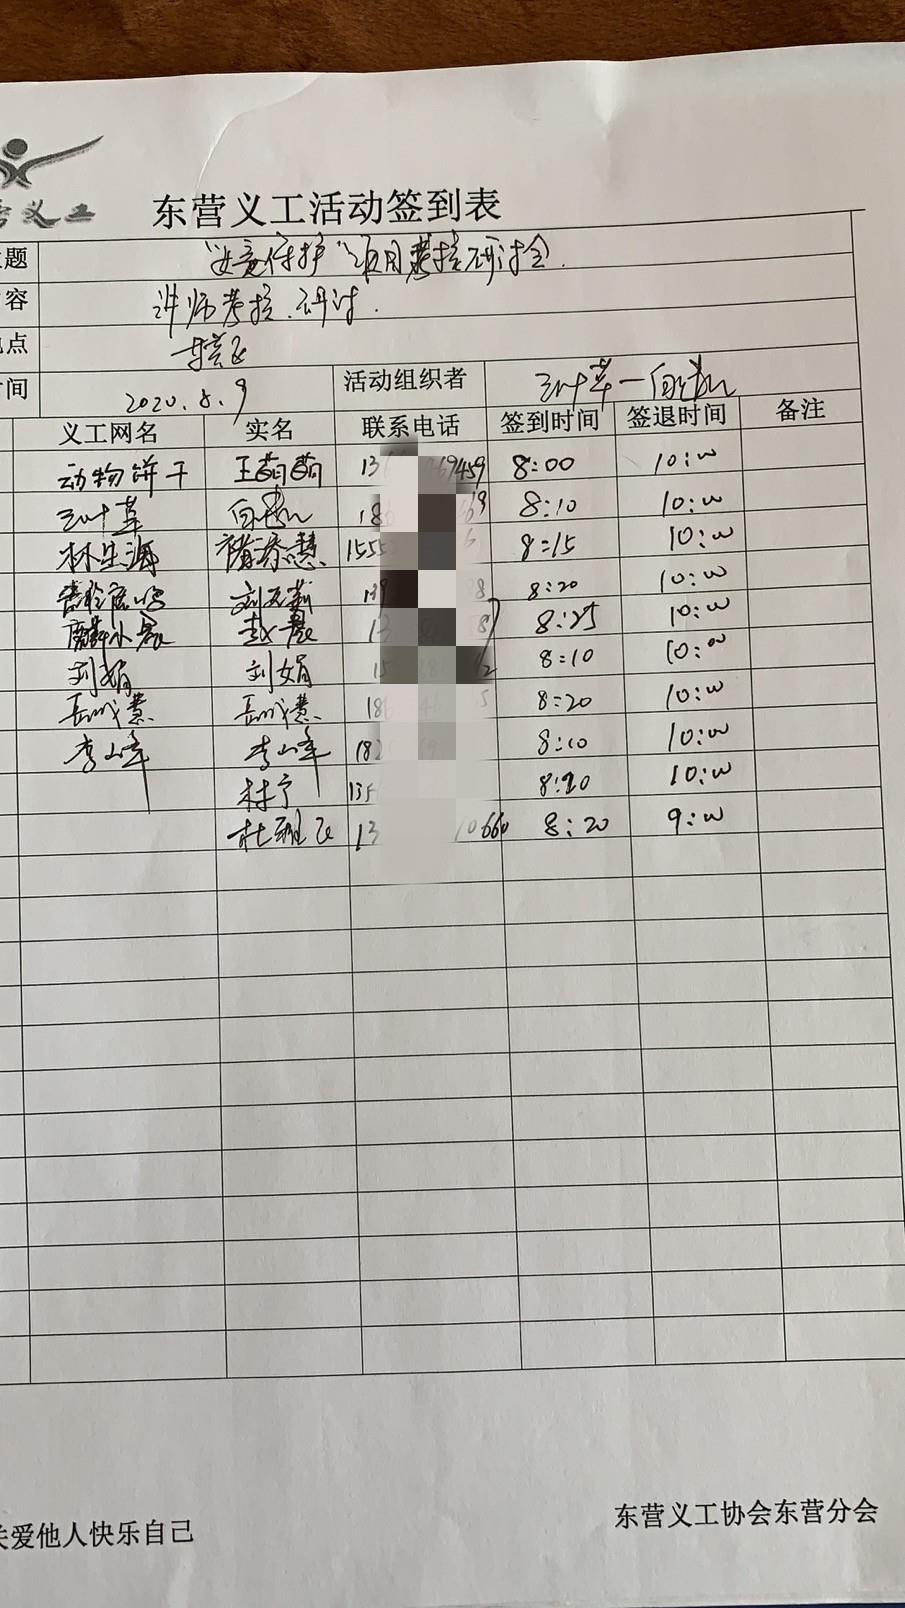 义工
东营义工活动签到表
题 "女童保护"项目考核研讨会.
容 讲师考核.研讨.
点
间 2020.8.9 活动组织者 三叶草一
义工网名 实名 联系电话 签到时间 签退时间 备注
动物饼干 王萌萌 13 459 8:00 10:00
三叶草 18 8:10 10:00
林生海 1555 8:15 10:00
139 8:20 10:00
麟小晨 赵晨 13 8:25 10:00
刘娟 刘娟 15 2 8:10 10:00
岳成慧 岳成慧 18 5 8:20 10:00
李山峰 李山峰 182 8:10 10:00
林宁 135 8:20 10:00
杜 13 10660 8:20 9:00
关爱他人快乐自己
东营义工协会东营分会